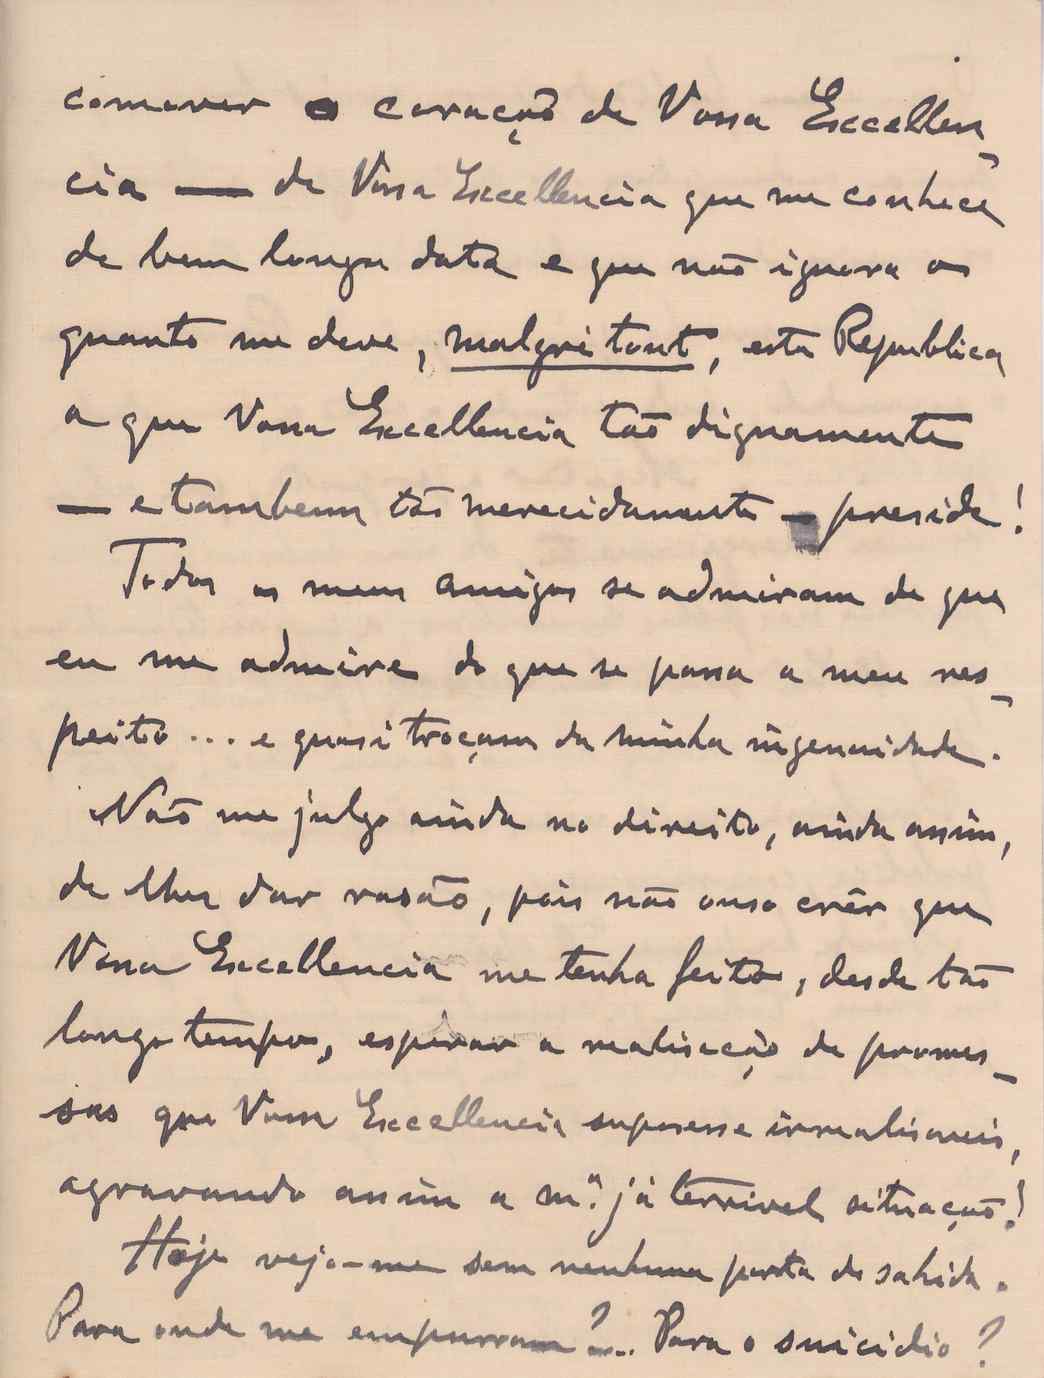 comover o coração de Vossa Excellen-
cia — de Vossa Excellencia que me conhece
de bem longa data e que não ignora o
quanto me deve, malgré tout, esta Republica
a que Vossa Excellencia tão dignamente
— e tambem tão merecidamente — preside!
Todos os meus amigos se admiram de que
eu me admire do que se passa a meu res-
peito ... e quasi troçam da minha ingenuidade.
Não me julgo ainda no direito, ainda assim,
de lhes dar rasão, pois não ouso crêr que
Vossa Excellencia me tenha feito, desde tão
longo tempo, esperar a realisação de promes-
sas que Vossa Excellencia suposesse irrealisaveis,
agravando assim a m.ª já terrivel situação!
Hoje vejo-me sem nenhuma porta de sahida.
Para onde me empurram?... Para o suicidio?